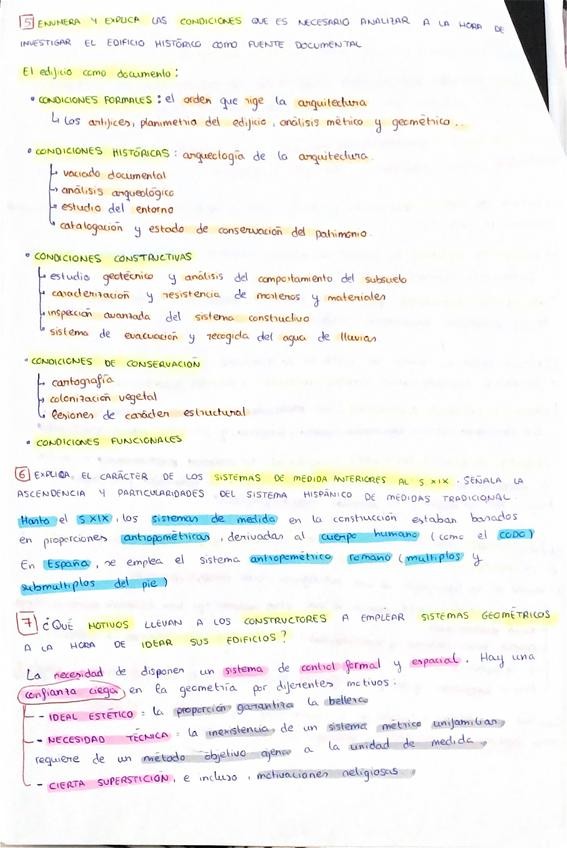 5 ENUMERA Y EXPLICA LAS CONDICIONES QUE ES NECESARIO ANALIZAR A LA HORA DE
INVESTIGAR EL EDIFICIO HISTÓRICO COMO FUENTE DOCUMENTAL
El edificio como documento:
• CONDICIONES FORMALES: el orden que rige la arquitectura
↳ los artífices, planimetría del edificio, análisis métrico y geométrico...
• CONDICIONES HISTÓRICAS: arqueología de la arquitectura.
→ vaciado documental
→ análisis arqueológico
→ estudio del entorno
→ catalogación y estado de conservación del patrimonio.
• CONDICIONES CONSTRUCTIVAS
→ estudio geotécnico y análisis del comportamiento del subsuelo
→ caracterización y resistencia de morteros y materiales
→ inspección avanzada del sistema constructivo
→ sistema de evacuación y recogida del agua de lluvias
• CONDICIONES DE CONSERVACIÓN
→ cartografía
→ colonización vegetal
→ lesiones de carácter estructural
• CONDICIONES FUNCIONALES
6 EXPLICA EL CARÁCTER DE LOS SISTEMAS DE MEDIDA ANTERIORES AL S XIX. SEÑALA LA
ASCENDENCIA Y PARTICULARIDADES DEL SISTEMA HISPÁNICO DE MEDIDAS TRADICIONAL.
Hasta el S XIX, los sistemas de medida en la construcción estaban basados
en proporciones antropométricas, derivadas al cuerpo humano (como el CODO)
En España, se emplea el sistema antropométrico romano (multiplos y
submultiplos del pie)
7 ¿QUÉ MOTIVOS LLEVAN A LOS CONSTRUCTORES A EMPLEAR SISTEMAS GEOMÉTRICOS
A LA HORA DE IDEAR SUS EDIFICIOS?
La necesidad de disponer un sistema de control formal y espacial. Hay una
confianza ciega en la geometría por diferentes motivos:
- IDEAL ESTÉTICO: la proporción garantiza la belleza
- NECESIDAD TÉCNICA: la inexistencia de un sistema métrico unifamiliar,
requiere de un método objetivo ajeno a la unidad de medida.
- CIERTA SUPERSTICIÓN, e incluso, motivaciones religiosas